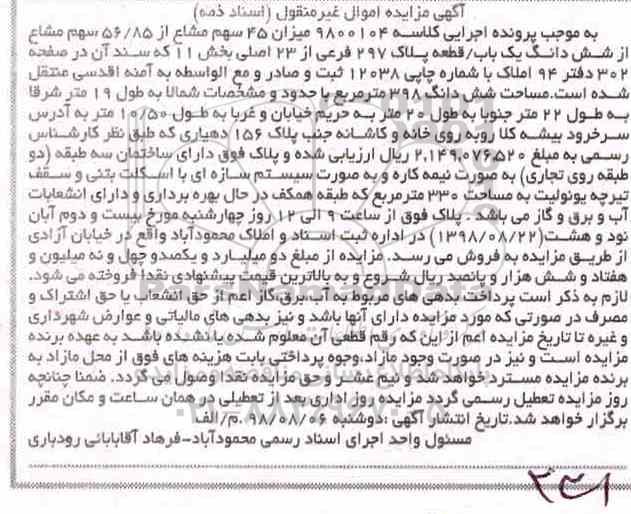 آگهی مزایده اموال غیرمنقول (اسناد ذمه)
به موجب پرونده اجرایی کلاسه ۹۸۰۰۱۰۴ میزان ۴۵ سهم مشاع از ۵۶/۸۵ سهم مشاع
از شش دانگ یک باب/قطعه پلاک ۲۹۷ فرعی از ۲۳ اصلی بخش ۱۱ که سند آن در صفحه
۳۰۲ دفتر ۹۴ املاک با شماره چاپی ۱۲۰۳۸ ثبت و صادر و مع الواسطه به آمنه اقدسی منتقل
شده است.مساحت شش دانگ ۳۹۸ مترمربع با حدود و مشخصات شمالا به طول ۱۹ متر شرقا
به طول ۲۲ متر جنوبا به طول ۲۰ متر به حریم خیابان و غربا به طول ۱۰/۵۰ متر به آدرس
سرخرود بیشه کلا روبه روی خانه و کاشانه جنب پلاک ۱۵۶ دهیاری که طبق نظر کارشناس
رسمی به مبلغ ۲.۱۴۹۰۷۶.۵۲۰ ریال ارزیابی شده و پلاک فوق دارای ساختمان سه طبقه (دو
طبقه روی تجاری) به صورت نیمه کاره و به صورت سیستم سازه ای با اسکلت بتنی و سقف
تیرچه یونولیت به مساحت ۳۳۰ مترمربع که طبقه همکف در حال بهره برداری و دارای انشعابات
آب و برق و گاز می باشد . پلاک فوق از ساعت ۹ الی ۱۲ روز چهارشنبه مورخ بیست و دوم آبان
نود و هشت(۱۳۹۸/۰۸/۲۲) در اداره ثبت اسناد و املاک محمودآباد واقع در خیابان آزادی
از طریق مزایده به فروش می رسد. مزایده از مبلغ دو میلیارد و یکصدو چهل و نه میلیون و
هفتاد و شش هزار و پانصد ریال شروع و به بالاترین قیمت پیشنهادی نقدا فروخته می شود.
لازم به ذکر است پرداخت بدهی های مربوط به آب،برق،گاز اعم از حق انشعاب یا حق اشتراک و
مصرف در صورتی که مورد مزایده دارای آنها باشد و نیز بدهی های مالیاتی و عوارض شهرداری
و غیره تا تاریخ مزایده اعم از این که رقم قطعی آن معلوم شده یا نشده باشد به عهده برنده
مزایده است و نیز در صورت وجود مازاد،وجوه پرداختی بابت هزینه های فوق از محل مازاد به
برنده مزایده مسترد خواهد شد و نیم عشر و حق مزایده نقدا وصول می گردد. ضمنا چنانچه
روز مزایده تعطیل رسمی گردد مزایده روز اداری بعد از تعطیلی در همان ساعت و مکان مقرر
برگزار خواهد شد.تاریخ انتشار آگهی :دوشنبه ۹۸/۰۸/۰۶ .م/الف
مسئول واحد اجرای اسناد رسمی محمودآباد-فرهاد آقابابائی رودباری